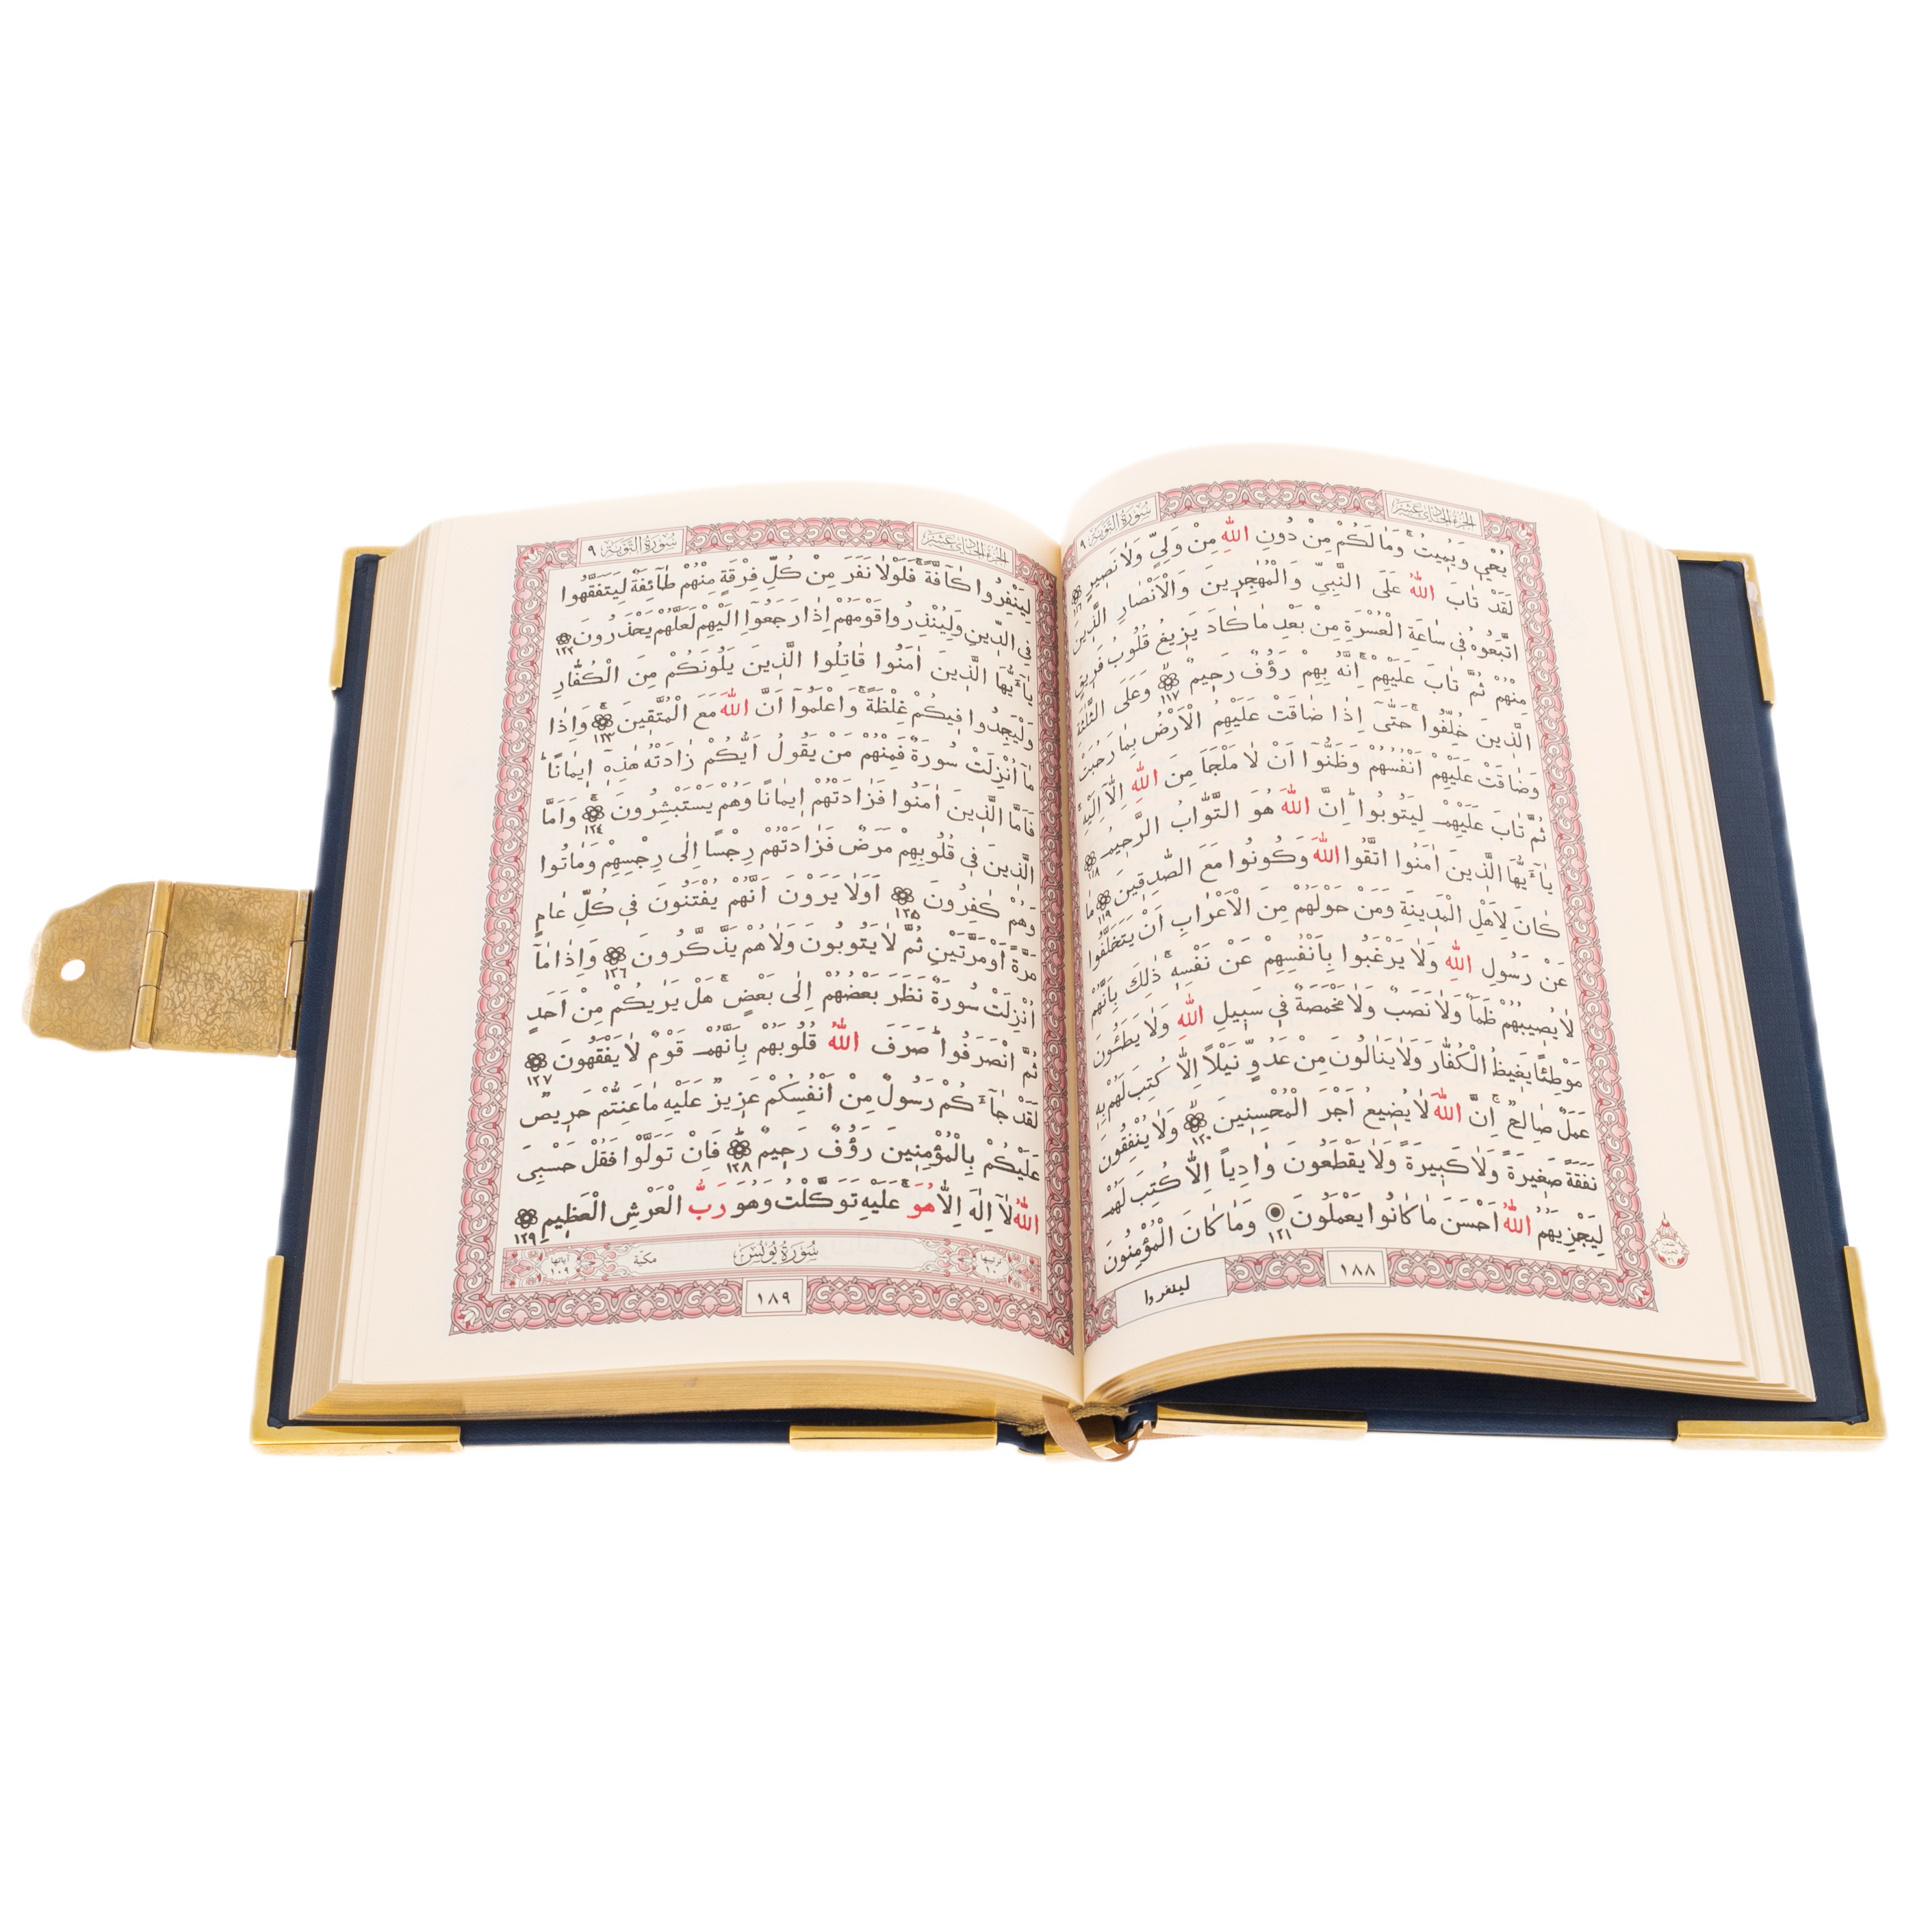 الجزء الحادي عشر
سُورَةُ التَّوبَة ٩
يُحْيٖ وَيُمٖيتُ ۚ وَمَا لَكُمْ مِنْ دُونِ اللّٰهِ مِنْ وَلِيٍّ وَلَا نَصٖيرٍ ١١٦
لَقَدْ تَابَ اللّٰهُ عَلَى النَّبِيِّ وَالْمُهَاجِرٖينَ وَالْاَنْصَارِ الَّذٖينَ
اتَّبَعُوهُ فٖي سَاعَةِ الْعُسْرَةِ مِنْ بَعْدِ مَا كَادَ يَزٖيغُ قُلُوبُ فَرٖيقٍ
مِنْهُمْ ثُمَّ تَابَ عَلَيْهِمْ ۚ اِنَّهُ بِهِمْ رَؤُفٌ رَحٖيمٌ ١١٧ وَعَلَى الثَّلٰثَةِ
الَّذٖينَ خُلِّفُوا ۚ حَتّٰٓى اِذَا ضَاقَتْ عَلَيْهِمُ الْاَرْضُ بِمَا رَحُبَتْ
وَضَاقَتْ عَلَيْهِمْ اَنْفُسُهُمْ وَظَنُّٓوا اَنْ لَا مَلْجَاَ مِنَ اللّٰهِ اِلَّٓا اِلَيْهِ
ثُمَّ تَابَ عَلَيْهِمْ لِيَتُوبُوا ؕ اِنَّ اللّٰهَ هُوَ التَّوَّابُ الرَّحٖيمُ ١١٨
يَٓا اَيُّهَا الَّذٖينَ اٰمَنُوا اتَّقُوا اللّٰهَ وَكُونُوا مَعَ الصَّادِقٖينَ ١١٩ مَا
كَانَ لِاَهْلِ الْمَدٖينَةِ وَمَنْ حَوْلَهُمْ مِنَ الْاَعْرَابِ اَنْ يَتَخَلَّفُوا
عَنْ رَسُولِ اللّٰهِ وَلَا يَرْغَبُوا بِاَنْفُسِهِمْ عَنْ نَفْسِهٖ ۚ ذٰلِكَ بِاَنَّهُمْ
لَا يُصٖيبُهُمْ ظَمَاٌ وَلَا نَصَبٌ وَلَا مَخْمَصَةٌ فٖي سَبٖيلِ اللّٰهِ وَلَا يَطَـُٔونَ
مَوْطِئًا يَغٖيظُ الْكُفَّارَ وَلَا يَنَالُونَ مِنْ عَدُوٍّ نَيْلًا اِلَّا كُتِبَ لَهُمْ بِهٖ
عَمَلٌ صَالِحٌ ۚ اِنَّ اللّٰهَ لَا يُضٖيعُ اَجْرَ الْمُحْسِنٖينَ ١٢٠ وَلَا يُنْفِقُونَ
نَفَقَةً صَغٖيرَةً وَلَا كَبٖيرَةً وَلَا يَقْطَعُونَ وَادِيًا اِلَّا كُتِبَ لَهُمْ
لِيَجْزِيَهُمُ اللّٰهُ اَحْسَنَ مَا كَانُوا يَعْمَلُونَ ١٢١ وَمَا كَانَ الْمُؤْمِنُونَ
١٨٨
لينفروا
الجزء الحادي عشر
سُورَةُ التَّوبَة ٩
لِيَنْفِرُوا كَٓافَّةً ۚ فَلَوْلَا نَفَرَ مِنْ كُلِّ فِرْقَةٍ مِنْهُمْ طَٓائِفَةٌ لِيَتَفَقَّهُوا
فِي الدّٖينِ وَلِيُنْذِرُوا قَوْمَهُمْ اِذَا رَجَعُٓوا اِلَيْهِمْ لَعَلَّهُمْ يَحْذَرُونَ ١٢٢
يَٓا اَيُّهَا الَّذٖينَ اٰمَنُوا قَاتِلُوا الَّذٖينَ يَلُونَكُمْ مِنَ الْكُفَّارِ
وَلْيَجِدُوا فٖيكُمْ غِلْظَةً ۚ وَاعْلَمُٓوا اَنَّ اللّٰهَ مَعَ الْمُتَّقٖينَ ١٢٣ وَاِذَا
مَٓا اُنْزِلَتْ سُورَةٌ فَمِنْهُمْ مَنْ يَقُولُ اَيُّكُمْ زَادَتْهُ هٰذِهٖٓ اٖيمَانًا ۚ
فَاَمَّا الَّذٖينَ اٰمَنُوا فَزَادَتْهُمْ اٖيمَانًا وَهُمْ يَسْتَبْشِرُونَ ١٢٤ وَاَمَّا
الَّذٖينَ فٖي قُلُوبِهِمْ مَرَضٌ فَزَادَتْهُمْ رِجْسًا اِلٰى رِجْسِهِمْ وَمَاتُوا
وَهُمْ كَافِرُونَ ١٢٥ اَوَلَا يَرَوْنَ اَنَّهُمْ يُفْتَنُونَ فٖي كُلِّ عَامٍ
مَرَّةً اَوْ مَرَّتَيْنِ ثُمَّ لَا يَتُوبُونَ وَلَا هُمْ يَذَّكَّرُونَ ١٢٦ وَاِذَا مَٓا
اُنْزِلَتْ سُورَةٌ نَظَرَ بَعْضُهُمْ اِلٰى بَعْضٍ ۚ هَلْ يَرٰيكُمْ مِنْ اَحَدٍ
ثُمَّ انْصَرَفُوا ؕ صَرَفَ اللّٰهُ قُلُوبَهُمْ بِاَنَّهُمْ قَوْمٌ لَا يَفْقَهُونَ ١٢٧
لَقَدْ جَٓاءَكُمْ رَسُولٌ مِنْ اَنْفُسِكُمْ عَزٖيزٌ عَلَيْهِ مَا عَنِتُّمْ حَرٖيصٌ
عَلَيْكُمْ بِالْمُؤْمِنٖينَ رَؤُفٌ رَحٖيمٌ ١٢٨ فَاِنْ تَوَلَّوْا فَقُلْ حَسْبِيَ
اللّٰهُ لَٓا اِلٰهَ اِلَّا هُوَ ۚ عَلَيْهِ تَوَكَّلْتُ وَهُوَ رَبُّ الْعَرْشِ الْعَظٖيمِ ١٢٩
ترتيبها ١٠ سُورَةُ يُونُسَ مكيّة آياتها ١٠٩
١٨٩